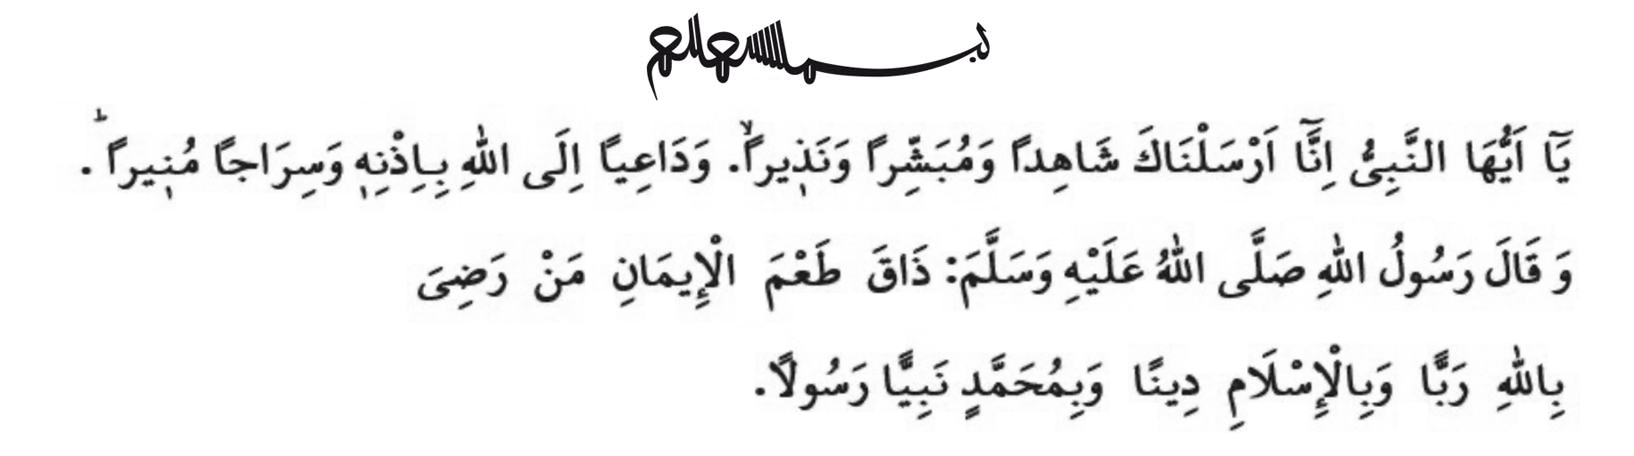 بسم الله الرحمن الرحيم
يَٓا اَيُّهَا النَّبِىُّ اِنَّٓا اَرْسَلْنَاكَ شَاهِداً وَمُبَشِّراً وَنَذ۪يراًۙ. وَدَاعِياً اِلَى اللّٰهِ بِاِذْنِه۪ وَسِرَاجاً مُن۪يراًؕ .
وَ قَالَ رَسُولُ اللّٰهِ صَلَّى اللّٰهُ عَلَيْهِ وَسَلَّمَ: ذَاقَ طَعْمَ الْإِيمَانِ مَنْ رَضِىَ
بِاللّٰهِ رَبًّا وَبِالْإِسْلَامِ دِينًا وَبِمُحَمَّدٍ نَبِيًّا رَسُولًا.